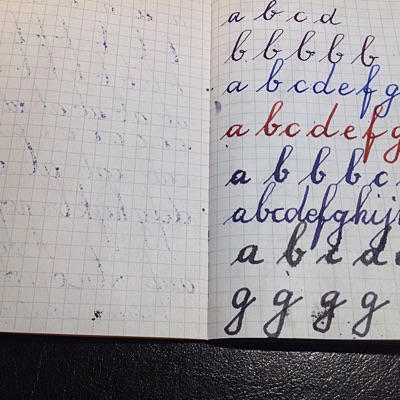 a b c d
b b b b b
a b c d e f g
a b c d e f g
a b b b c
a b c d e f g h i j
a b c d
g g g g